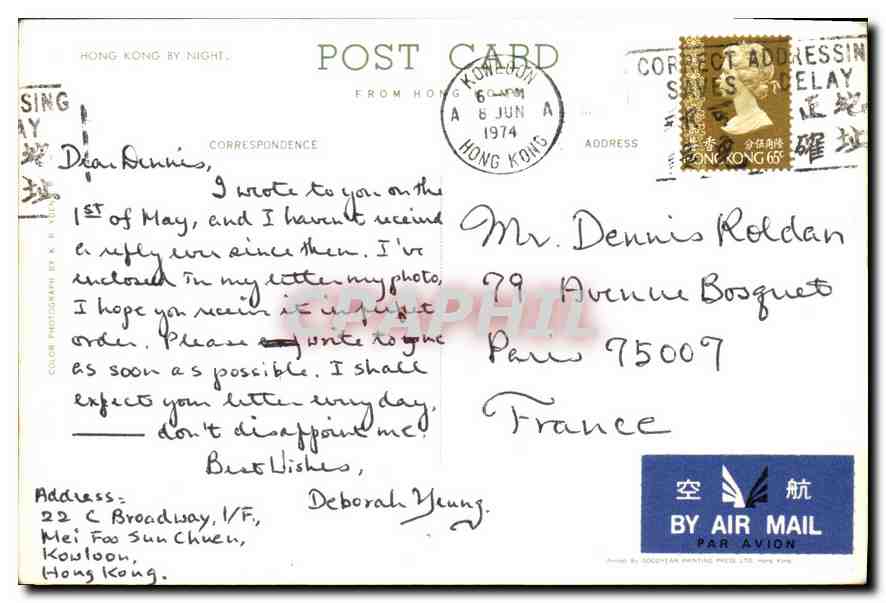 HONG KONG BY NIGHT.
POST CARD
FROM HONG KONG
KOWLOON
6 - PM
A 8 JUN A
1974
HONG KONG
CORRECT ADDRESSING
SAVES DELAY
正確
地址
香港
HONG KONG 65¢
SSING
AY
地址
CORRESPONDENCE
ADDRESS
Dear Dennis,
I wrote to you on the
1ST of May, and I haven't received
a reply ever since then. I've
enclosed in my letter my photo,
I hope you receive it in perfect
order. Please write to me
as soon as possible. I shall
expect your letter everyday,
—— don't disappoint me!
Best Wishes,
Deborah Yeung.
Address:
22 C Broadway, 1/F.,
Mei Foo Sun Chuen,
Kowloon,
Hong Kong.
Mr. Dennis Roldan
79 Avenue Bosquet
Paris 75007
France
空 航
BY AIR MAIL
PAR AVION
Printed by GOODYEAR PRINTING PRESS LTD. Hong Kong
COLOR PHOTOGRAPH BY K. P.
CPAPHIL